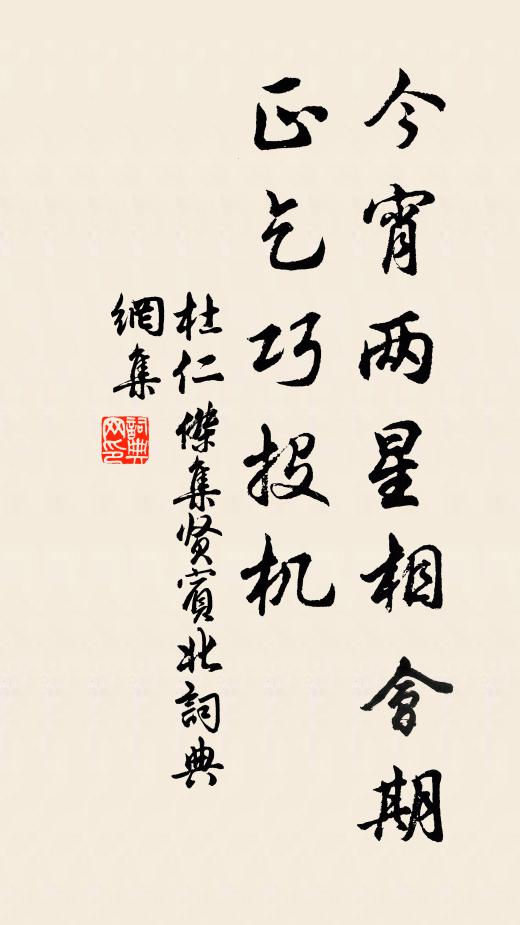 今宵两星相會期
正乞巧投机
杜仁傑集贤賓北詞典
網集
詞典
网印